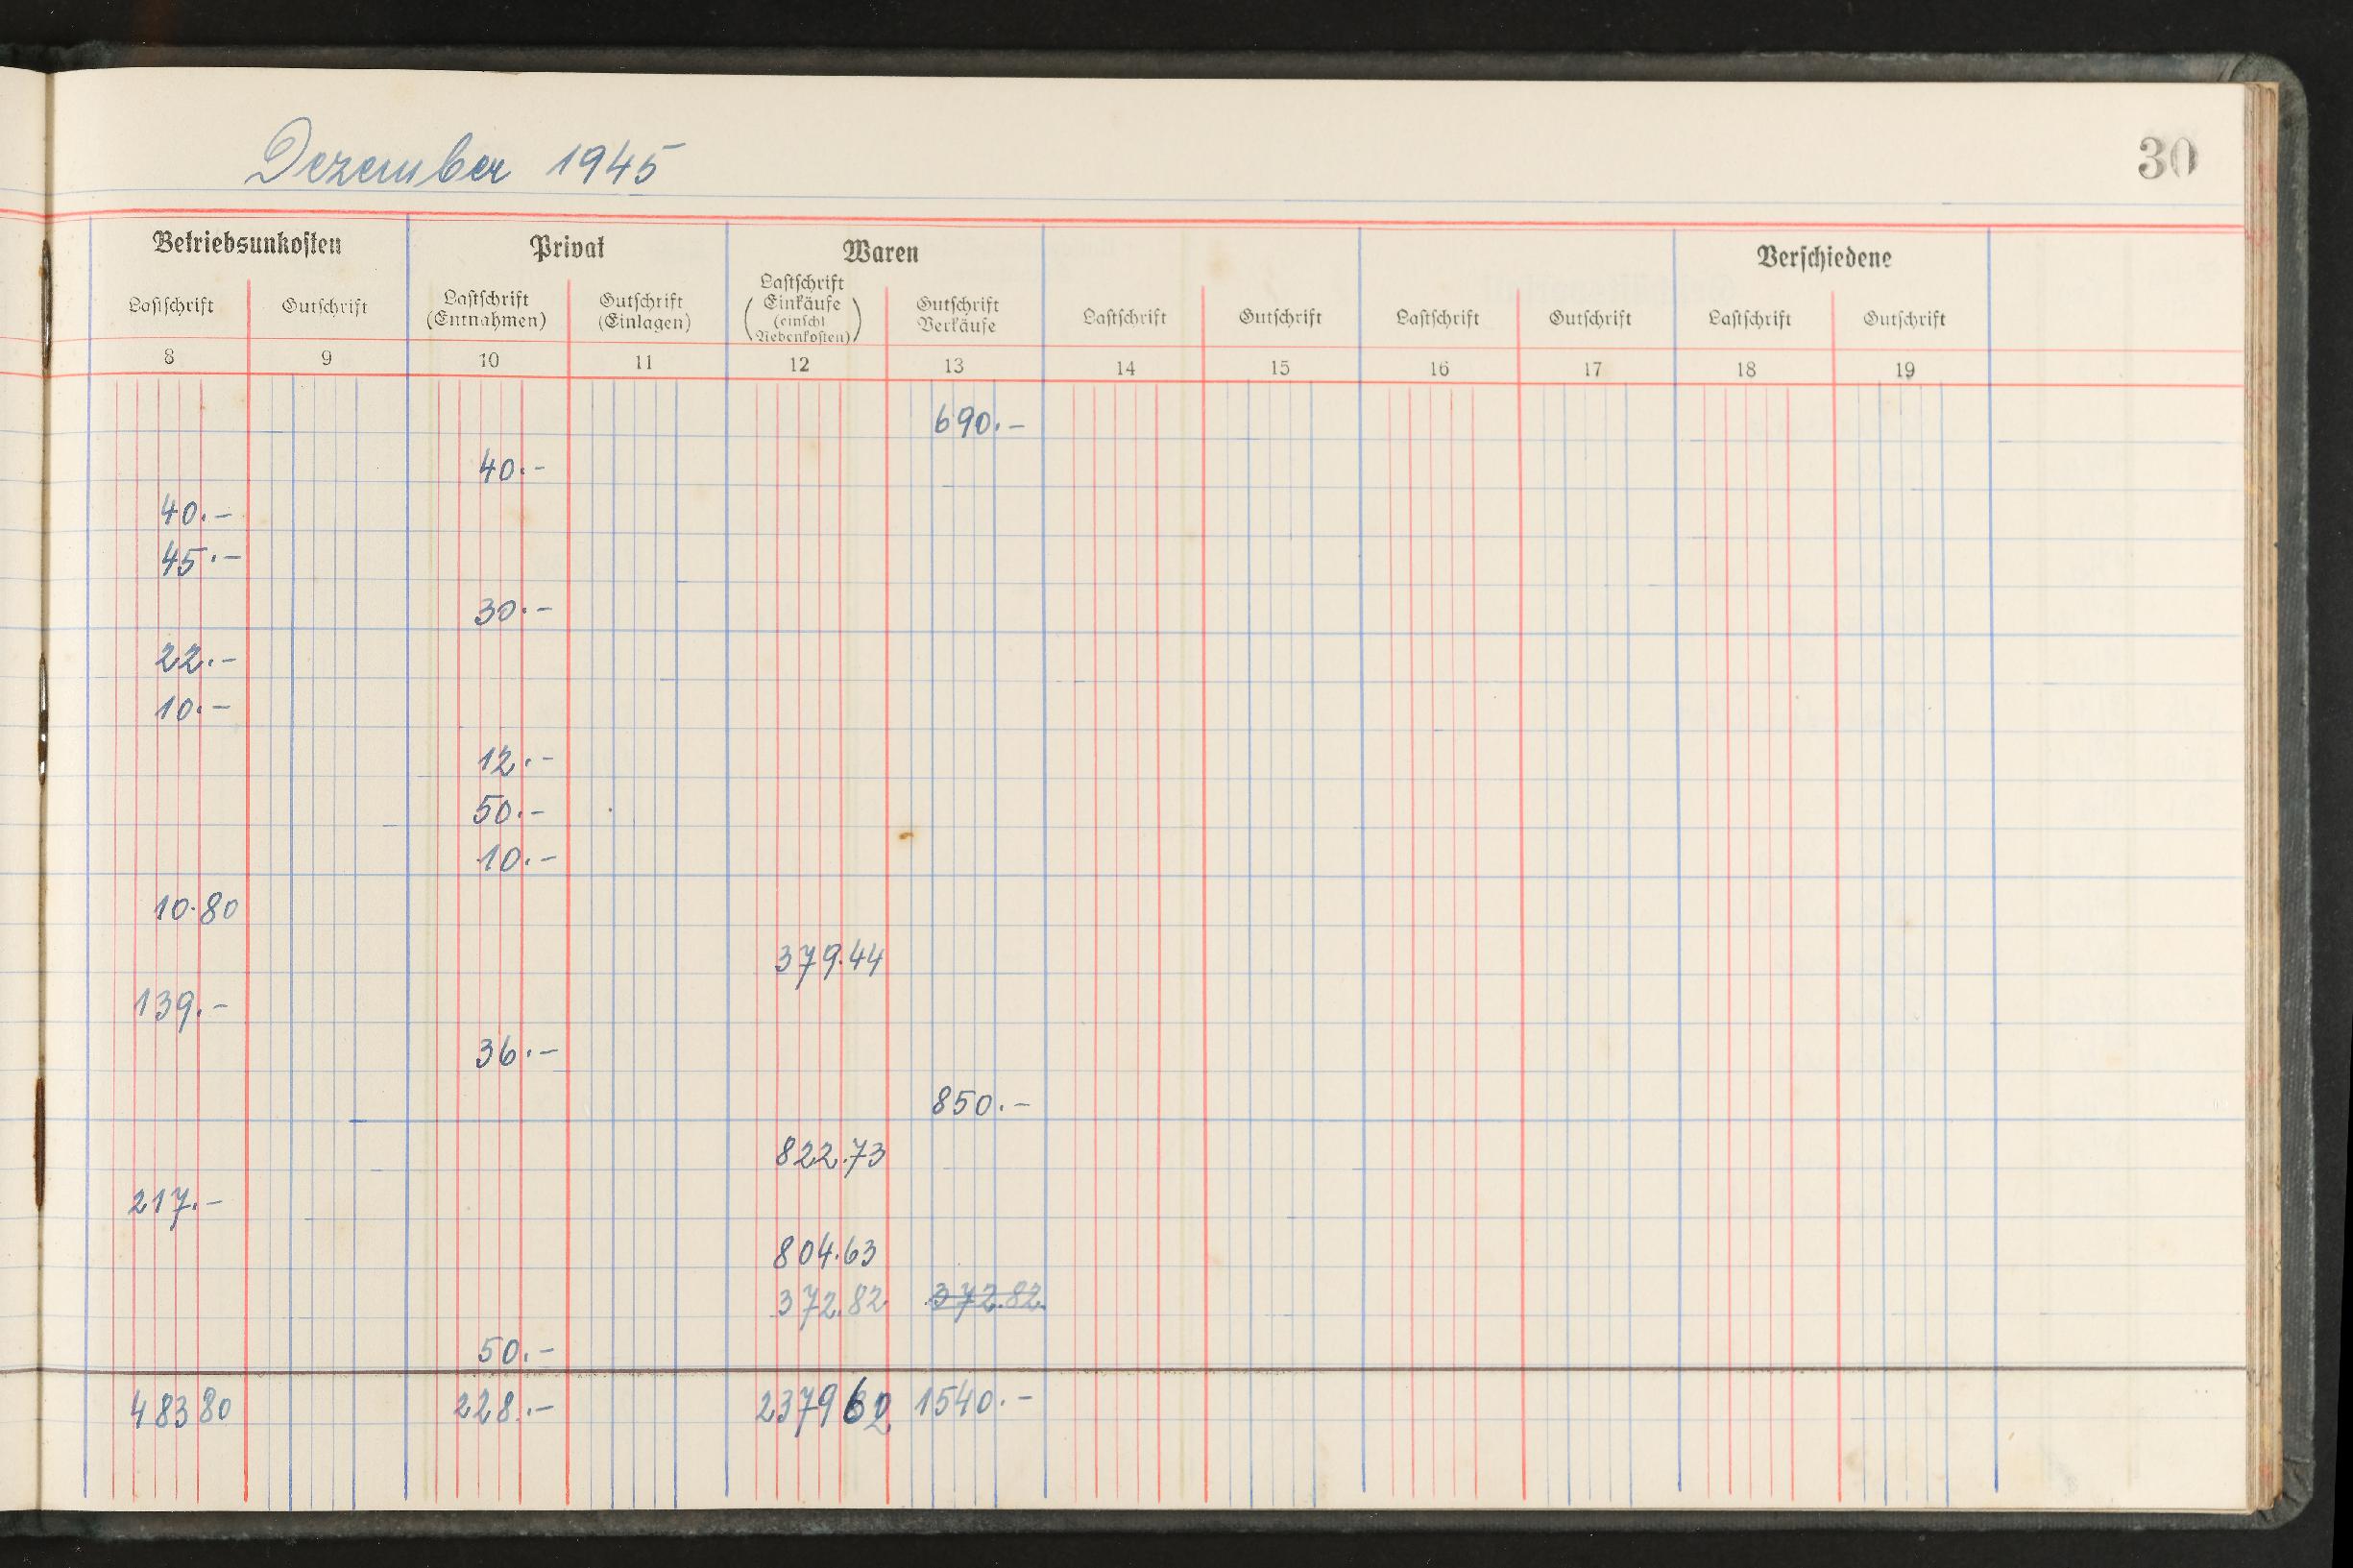 Dezember 1945
30
Betriebsunkosten Privat Waren Verschiedene
Lastschrift Gutschrift Lastschrift (Entnahmen) Gutschrift (Einlagen) Lastschrift (Einkäufe (einschl Nebenkosten)) Gutschrift Verkäufe Lastschrift Gutschrift Lastschrift Gutschrift Lastschrift Gutschrift
8 9 10 11 12 13 14 15 16 17 18 19
690.-
40.-
40.-
45.-
30.-
22.-
10.-
12.-
50.-
10.-
10.80
379.44
139.-
36.-
850.-
822.73
217.-
804.63
372.82 372.82
50.-
483 80 228.- 2379 62 1540.-